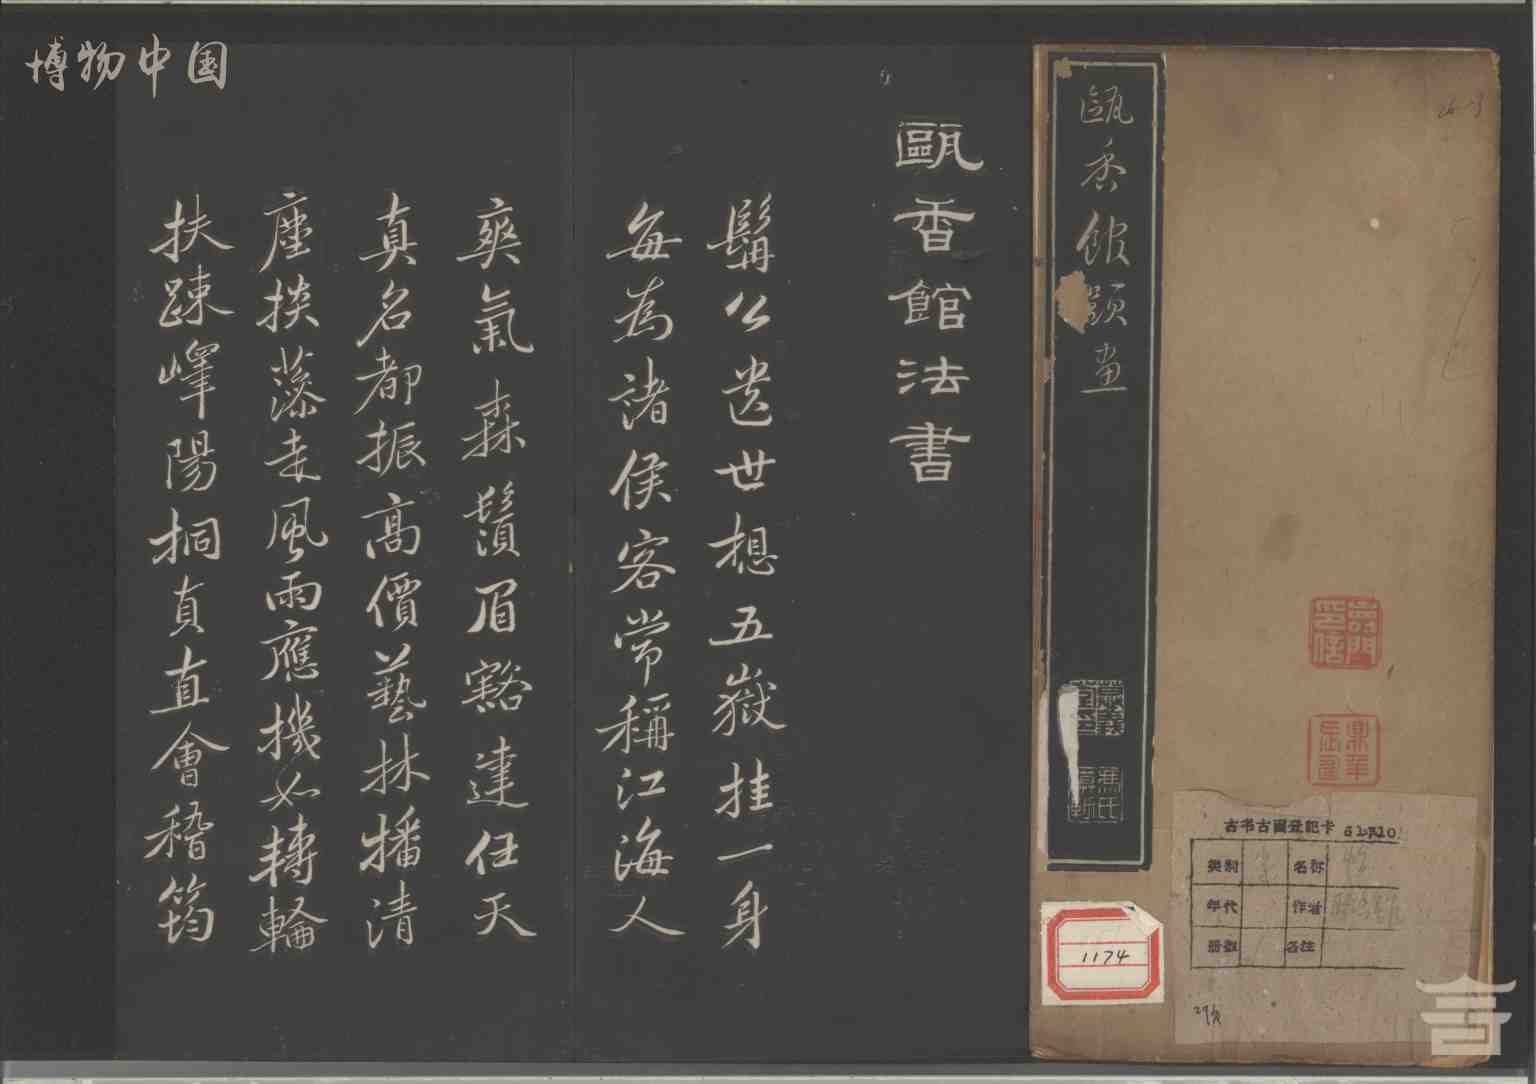 博物中国
甌香館題畫
甌香館法書
鬅公遺世想五嶽挂一身
每為諸侯客常稱江海人
爽氣森鬚眉豁達任天
真名都振高價藝林播清
塵掞藻走風雨應機如轉輪
扶疎嶧陽桐貞直會稽筠
古书古画登記卡
类别
名称
年代
作者
册数
备注
1174